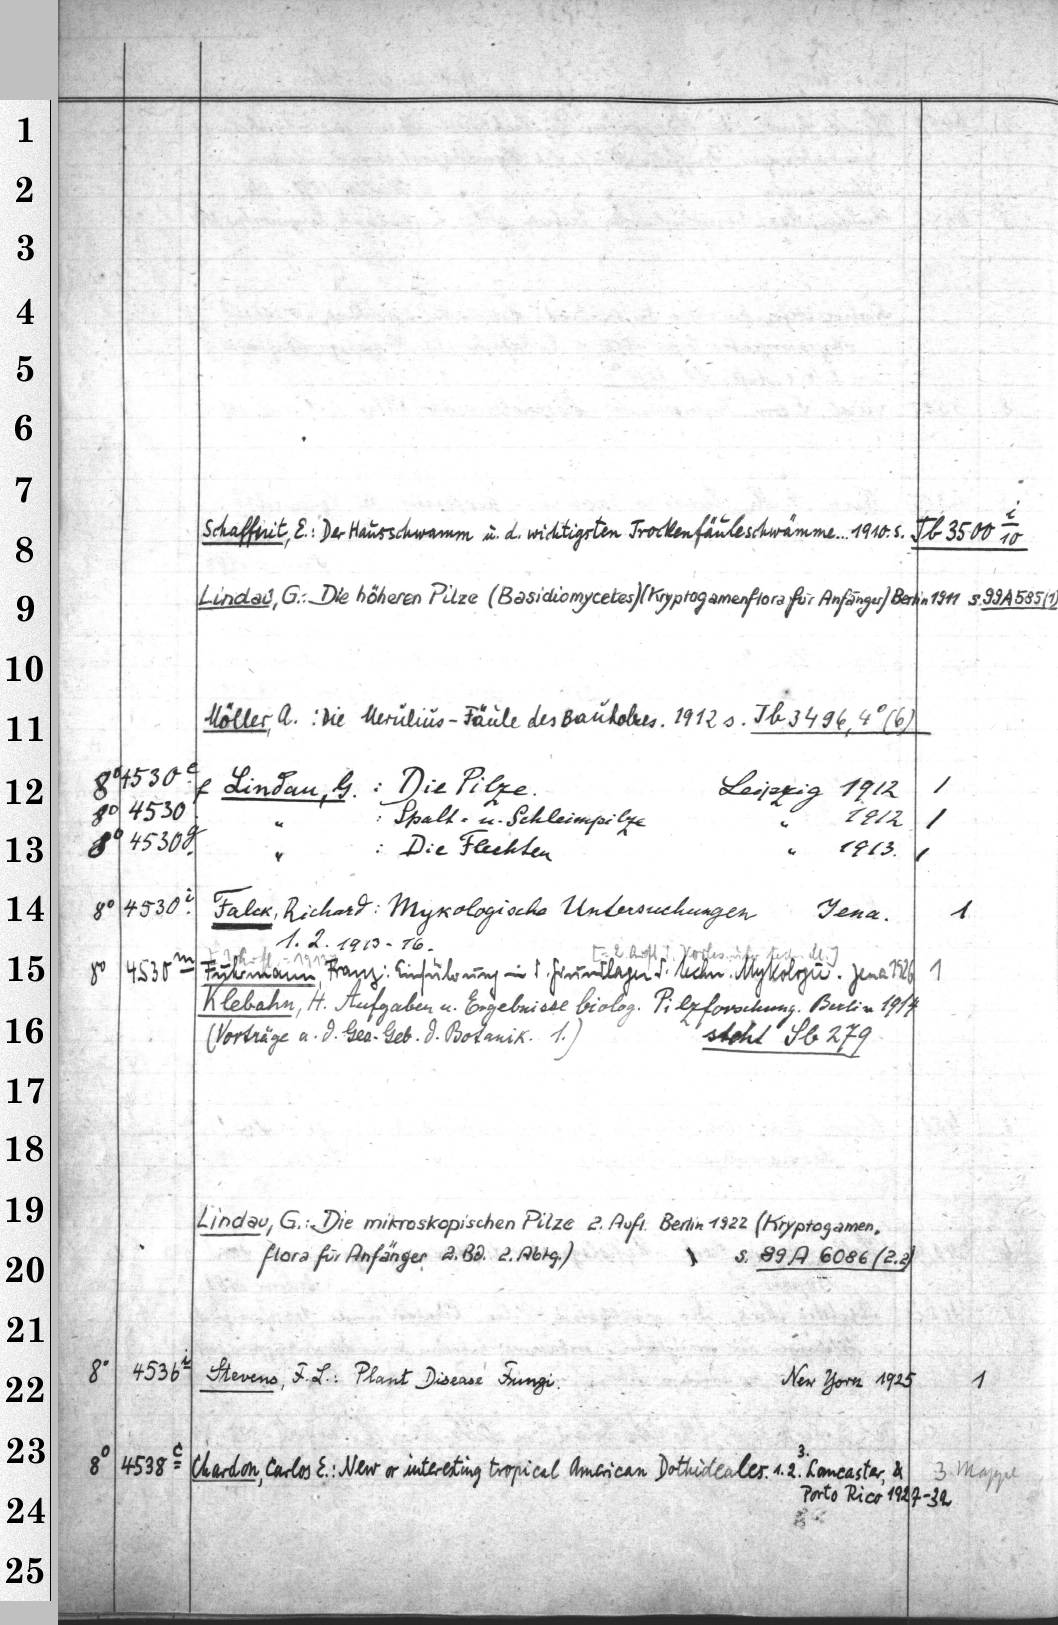 1
2
3
4
5
6
7
Schaffnit, E.: Der Hausschwamm u. d. wichtigsten Trockenfäuleschwämme... 1910. s. Jb 3500 i/10
8
Lindau, G.: Die höheren Pilze (Basidiomycetes) (Kryptogamenflora für Anfänger) Berlin 1911 s. 99A585(1)
9
10
Möller, A.: Die Merulius-Fäule des Bauholzes. 1912 s. Jb 3496, 4° (6)
11
12 8° 4530 e f Lindau, G.: Die Pilze. Leipzig 1912 1
8° 4530 " : Spalt- u. Schleimpilze " 1912 1
13 8° 4530 g. " : Die Flechten " 1913. 1
14 8° 4530 i. Falck, Richard: Mykologische Untersuchungen Jena. 1
1. 2. 1913-16.
15 8° 4530 m Fuhrmann, Franz: Einführung in d. Grundlagen d. techn. Mykologie. Jena 1926 1
Klebahn, H. Aufgaben u. Ergebnisse biolog. Pilzforschung. Berlin 1914
16 (Vorträge a. d. Ges. Geb. d. Botanik. 1.) steht Sb 279
17
18
19 Lindau, G.: Die mikroskopischen Pilze 2. Aufl. Berlin 1922 (Kryptogamen-
20 flora für Anfänger 2. Bd. 2. Abtg.) s. 99A 6086 (2.2)
21
22 8° 4536 i Stevens, F. L.: Plant Disease Fungi. New York 1925 1
23 8° 4538 c Chardon, Carlos E.: New or interesting tropical American Dothideales. 1. 2. 3. Lancaster, & 3 Mappe
24 Porto Rico 1927-32
25